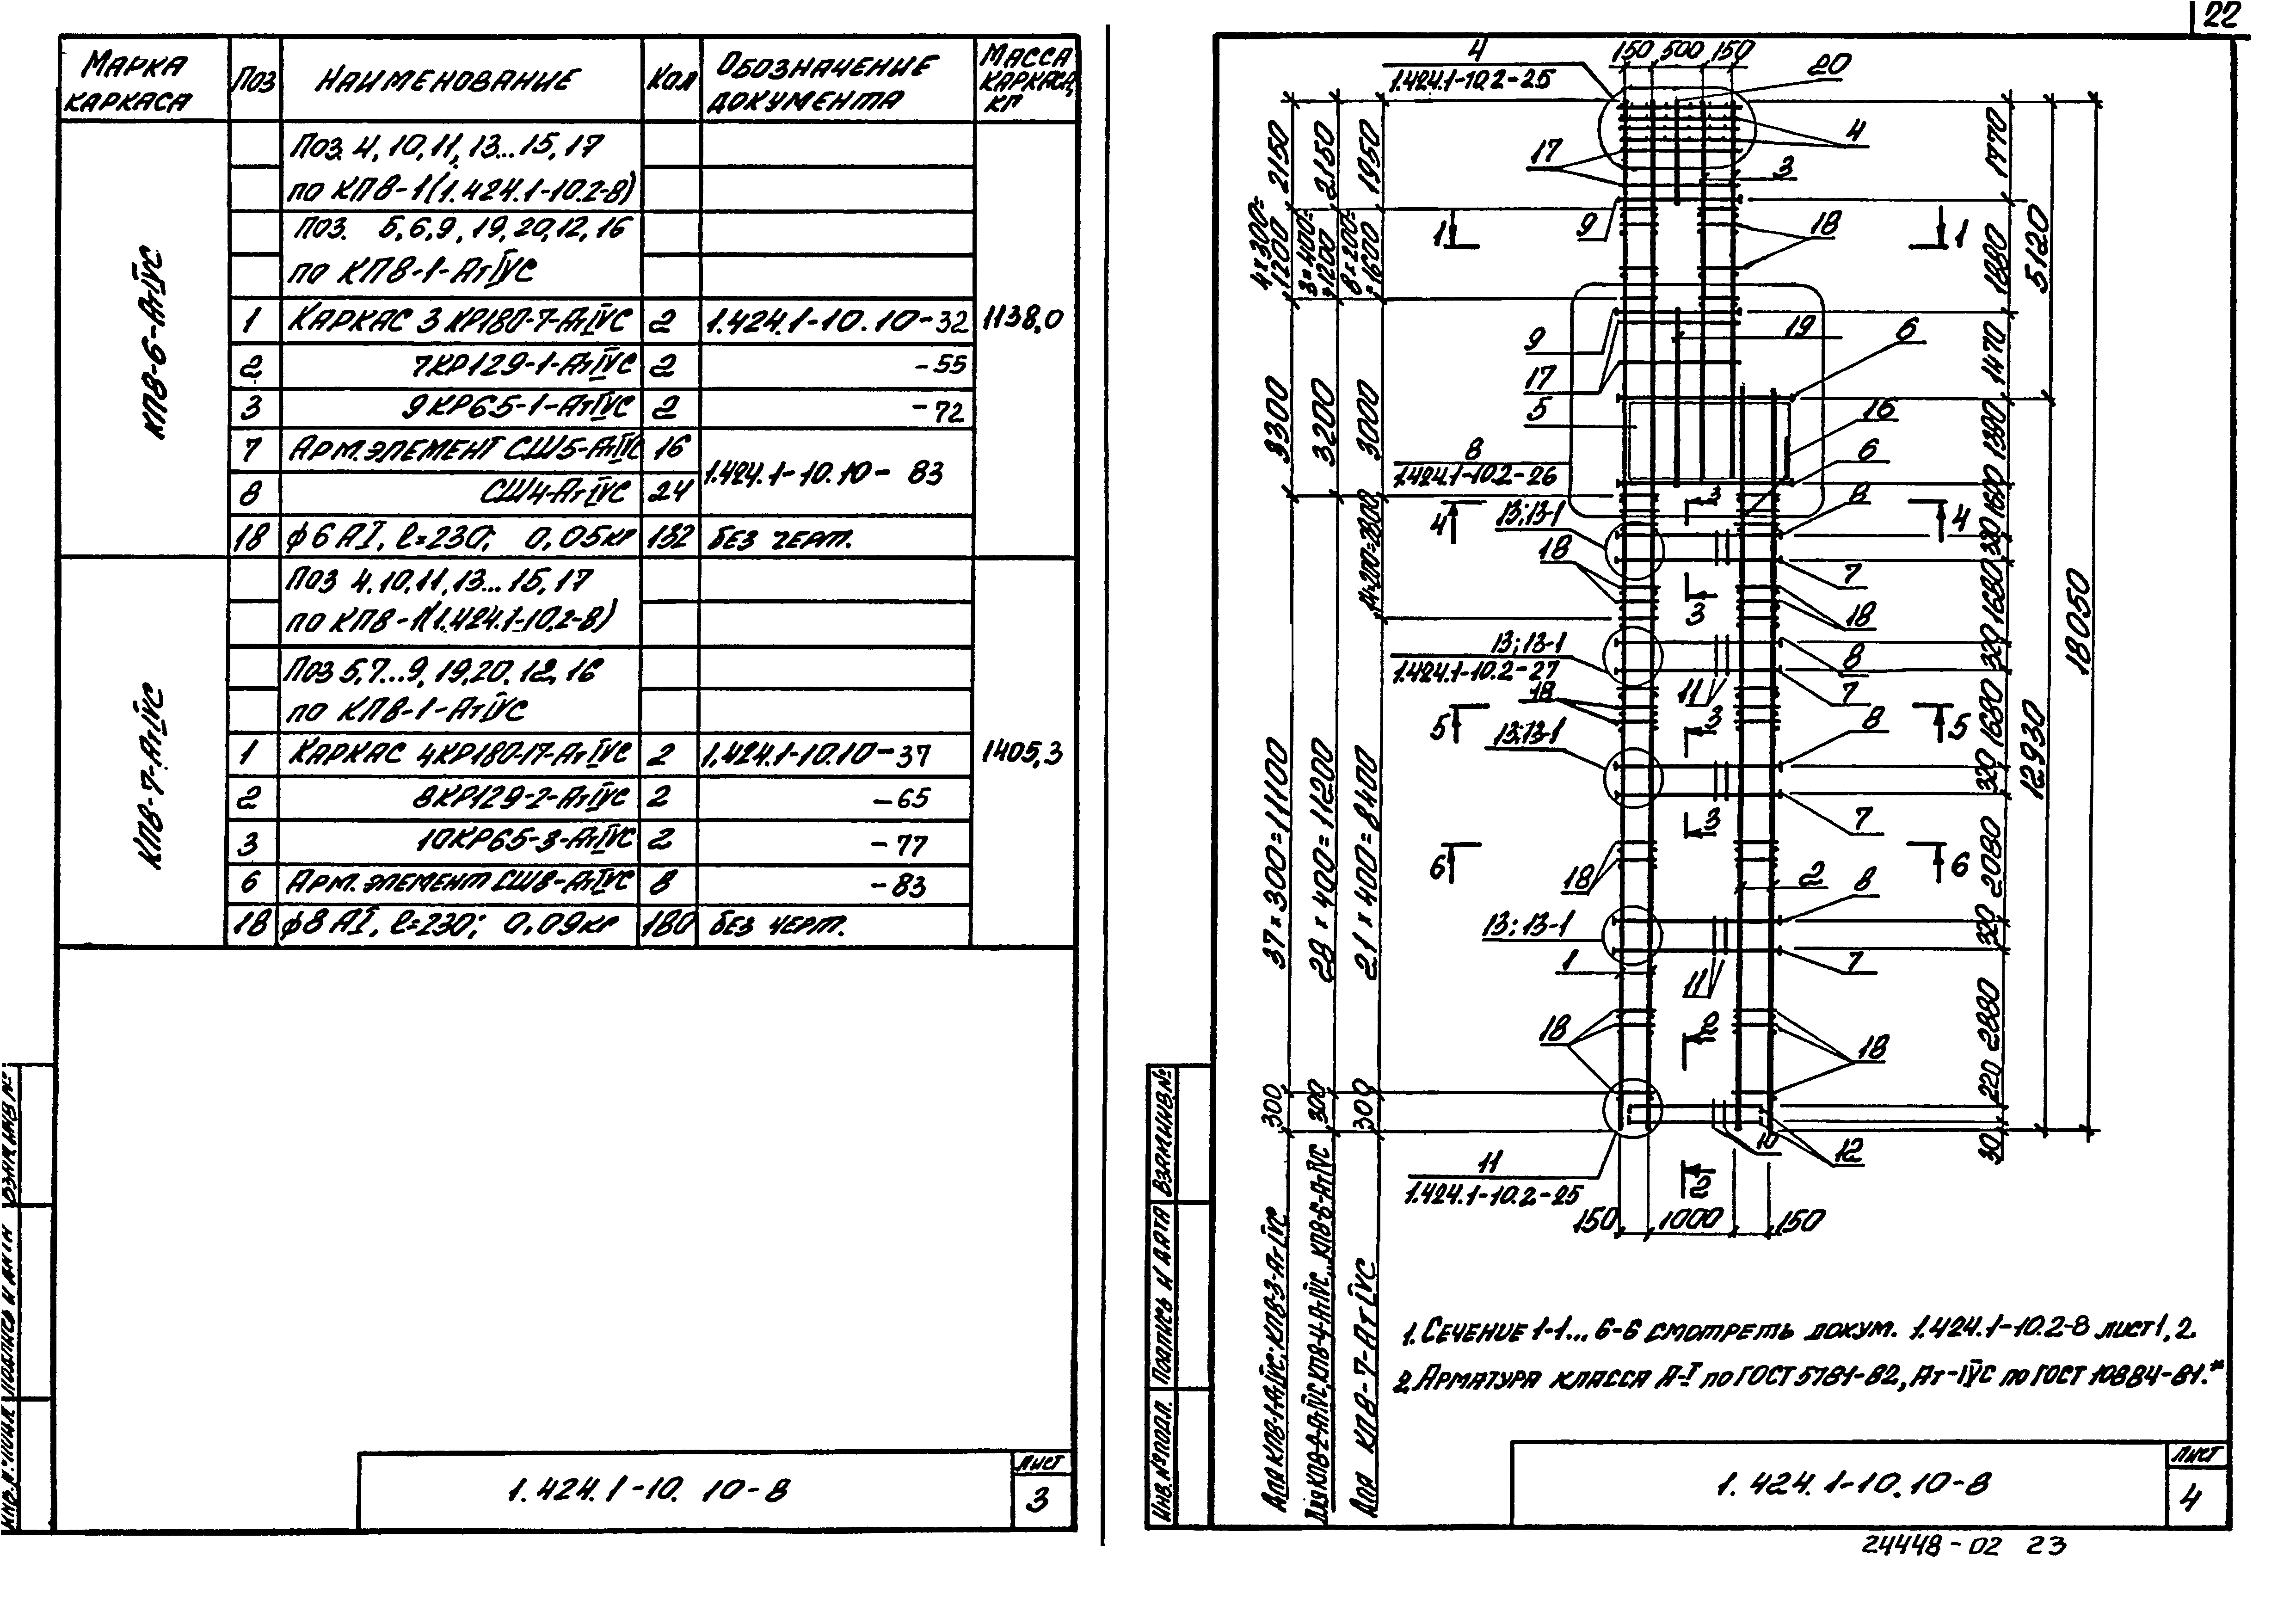 Марка каркаса | Поз | Наименование | Кол | Обозначение документа | Масса каркаса, кг
КП8-6-АтIVС
Поз. 4, 10, 11, 13...15, 17
по КП8-1 (1.424.1-10.2-8)
Поз. 5, 6, 9, 19, 20, 12, 16
по КП8-1-АтIVС
1 | Каркас 3КР180-7-АтIVС | 2 | 1.424.1-10.10-32 | 1138,0
2 | 7КР129-1-АтIVС | 2 | -55
3 | 9КР65-1-АтIVС | 2 | -72
7 | Арм. элемент СШ5-АтIVС | 16 | 1.424.1-10.10-83
8 | СШ4-АтIVС | 24
18 | ф6АI, ℓ=230; 0,05кг | 132 | без черт.
КП8-7-АтIVС
Поз 4, 10, 11, 13...15, 17
по КП8-1 (1.424.1-10.2-8)
Поз 5, 7...9, 19, 20, 12, 16
по КП8-1-АтIVС
1 | Каркас 4КР180-17-АтIVС | 2 | 1.424.1-10.10-37 | 1405,3
2 | 8КР129-2-АтIVС | 2 | -65
3 | 10КР65-3-АтIVС | 2 | -77
6 | Арм. элемент СШ8-АтIVС | 8 | -83
18 | ф8АI, ℓ=230; 0,09кг | 180 | без черт.
Взам. инв №
Подпись и дата
Инв. № подл.
1.424.1-10.10-8
Лист
3
22
4
1.424.1-10.2-25
150 500 150
20
4
17
3
9
18
1 1
9
19
6
17
5
16
8
1.424.1-10.2-26
6
3
8
4 4
13; 13-1
18
7
3
18
13; 13-1
1.424.1-10.2-27
8
11
7
18
3
5 5
8
13; 13-1
7
3
6 6
18
2
8
13; 13-1
7
1
11
18
2
18
10
12
11
1.424.1-10.2-25
2
150 1000 150
2150
4×300=1200
3300
37×300=11100
300
Для КП8-1-АтIVС; КП8-3-АтIVС
2150
3×400=1200
3200
28×400=11200
300
Для КП8-2-АтIVС, КП8-4-АтIVС... КП8-6-АтIVС
1950
8×200=1600
3000
14×200=2800
21×400=8400
300
Для КП8-7-АтIVС
1770
1880
1470
1390
1600
320
1680
320
1680
320
2080
320
2880
220
30
5120
12930
18050
1. Сечение 1-1... 6-6 смотреть докум. 1.424.1-10.2-8 лист 1, 2.
2. Арматура класса А-I по ГОСТ 5781-82, Ат-IVС по ГОСТ 10884-81.*
Взам. инв. №
Подпись и дата
Инв. № подл.
1.424.1-10.10-8
Лист
4
24448-02 23